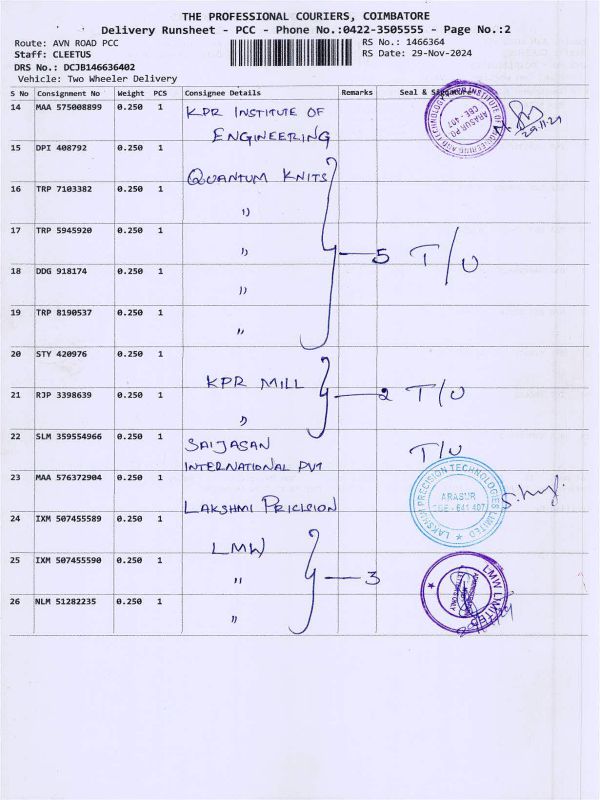 THE PROFESSIONAL COURIERS, COIMBATORE
Delivery Runsheet - PCC - Phone No.:0422-3505555 - Page No.:2
Route: AVN ROAD PCC RS No.: 1466364
Staff: CLEETUS RS Date: 29-Nov-2024
DRS No.: DCJB146636402
Vehicle: Two Wheeler Delivery
S No Consignment No Weight PCS Consignee Details Remarks Seal & Signature
14 MAA 575008899 0.250 1 KPR INSTITUTE OF
ENGINEERING
ARASUR PO.
CBE - 407
29.11.24
15 DPI 408792 0.250 1 QUANTUM KNITS
16 TRP 7103382 0.250 1 "
17 TRP 5945920 0.250 1 " 5 T/U
18 DDG 918174 0.250 1 "
19 TRP 8190537 0.250 1 "
20 STY 420976 0.250 1 KPR MILL
21 RJP 3398639 0.250 1 " 2 T/U
22 SLM 359554966 0.250 1 SAIJASAN T/U
INTERNATIONAL PVT
23 MAA 576372904 0.250 1 LAKSHMI PRICISION
LAKSHMI PRECISION TECHNOLOGIES LIMITED
ARASUR
CBE - 641 407
24 IXM 507455589 0.250 1 LMW
25 IXM 507455590 0.250 1 " 3
LMW LIMITED
26 NLM 51282235 0.250 1 "